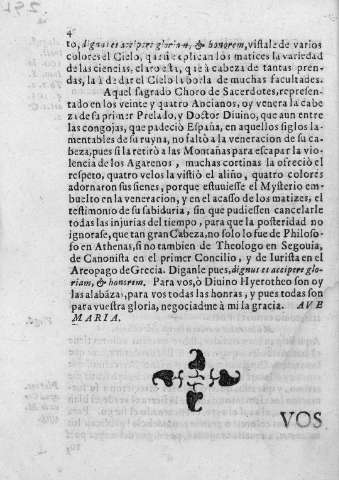 4
to, dignus es accipere gloriam, & honorem, vistale de varios
colores el Cielo, que si explican los matices la variedad
de las ciencias, claro està, que à cabeza de tantas pren-
das, la à de dar el Cielo la borla de muchas facultades.
Aquel sagrado Choro de Sacerdotes, represen-
tado en los veinte y quatro Ancianos, oy venera la cabe
za de su primer Prelado, y Doctor Diuino, que aun entre
las congojas, que padeciò España, en aquellos siglos la-
mentables de su ruyna, no faltò a la veneracion de su ca-
beza, pues si la retirò a las Montañas para escapar la vio-
lencia de los Agarenos, muchas cortinas la ofreciò el
respeto, quatro velos la vistiò el aliño, quatro colores
adornaron sus sienes, porque estuuiesse el Mysterio em-
buelto en la veneracion, y en el acasso de los matizes, el
testimonio de su sabiduria, sin que pudiessen cancelarle
todas las injurias del tiempo, para que la posteridad no
ignorase, que tan gran Cabeza, no solo lo fue de Philoso-
fo en Athenas, si no tambien de Theologo en Segouia,
de Canonista en el primer Concilio, y de Iurista en el
Areopago de Grecia. Diganle pues, dignus es accipere glo-
riam, & honorem. Para vos, ò Diuino Hyerotheo son oy
las alabãzas, para vos todas las honras, y pues todas son
para vuestra gloria, negociadme à mi la gracia. AVE
MARIA.
VOS